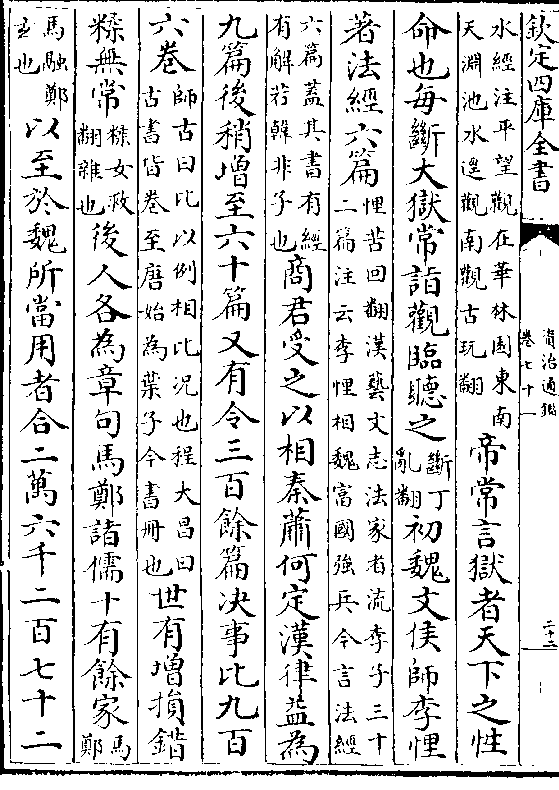 欽定四庫全書
資治通鑑
卷七十一
水經注平望觀在華林園東南
天淵池水逕觀南觀古玩翻
帝常言獄者天下之性
命也每斷大獄常詣觀臨聽之斷丁亂翻初魏文侯師李悝
著法經六篇
悝苦回翻漢藝文志法家者流李子三十
二篇注云李悝相魏富國強兵今言法經
六篇蓋其書有經
有解若韓非子也
商君受之以相秦蕭何定漢律益為
九篇後稍增至六十篇又有令三百餘篇决事比九百
六卷
師古曰比以例相比况也程大昌曰
古書皆卷至唐始為葉子今書冊也
世有增損錯
糅無常糅女救翻雜也後人各為章句馬鄭諸儒十有餘家馬鄭
馬融鄭
玄也
以至於魏所當用者合二萬六千二百七十二